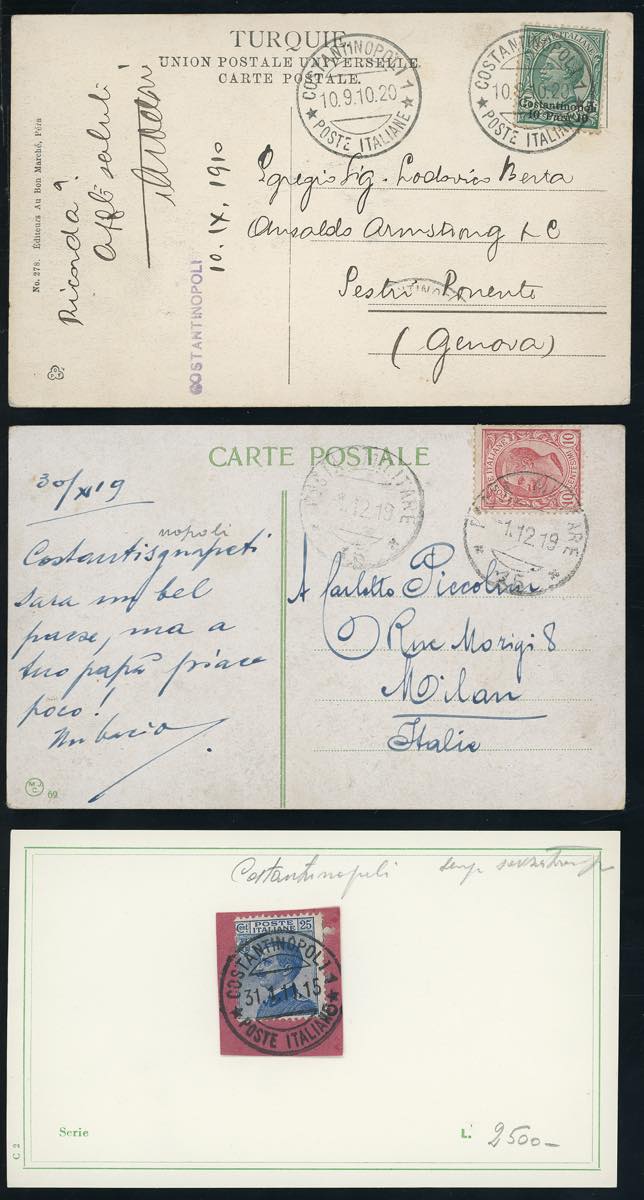 TURQUIE
UNION POSTALE UNIVERSELLE
CARTE POSTALE.
COSTANTINOPOLI 1
10.9.10.20
★ POSTE ITALIANE ★
COSTANTINOPOLI 1
10.9.10.20
★ POSTE ITALIANE ★
POSTE ITALIANE
Costantinopoli
10 Para 10
No. 278. Éditeurs Au Bon Marché, Péra
Ricorda?
Affti saluti
COSTANTINOPOLI
10. IX. 1910
Egregio Sig. Lodovico Berta
Ansaldo Armstrong & C
Sestri Ponente
(Genova)
CARTE POSTALE
30/XI 19
nopoli
sara un bel
paese, ma a
tuo papà piace
poco!
Un bacio
MJC
69
POSTA MILITARE
1.12.19
* 35 *
POSTA MILITARE
1.12.19
* 35 *
POSTE ITALIANE
10
10
A Carletto Piccolini
Rue Morigi 8
Milan
Italie
Costantinopoli
POSTE
ITALIANE
Cent
25
COSTANTINOPOLI 1
31.1.11.15
★ POSTE ITALIANE ★
Serie
L. 2500-
C 2